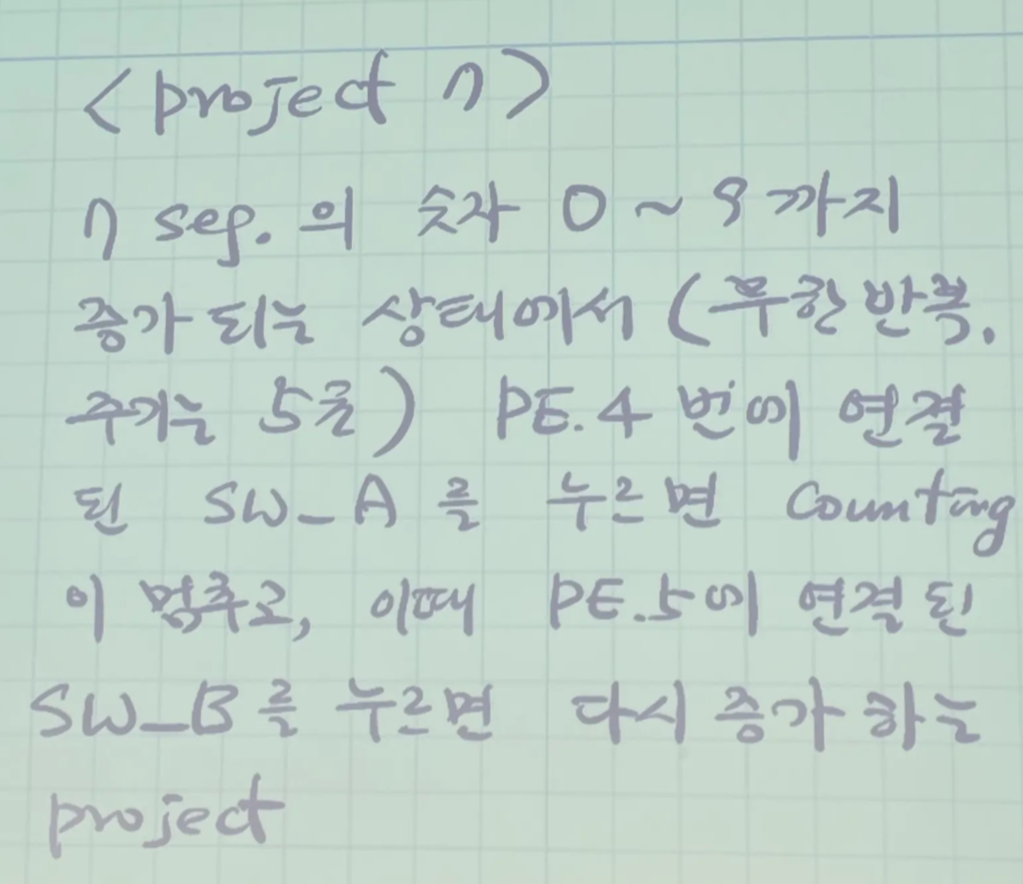 <project 7>
7 seg. 의 숫자 0 ~ 9 까지
증가 되는 상태에서 (무한 반복.
주기는 5초) PE.4 번에 연결
된 SW_A 를 누르면 Counting
이 멈추고, 이때 PE.5에 연결된
SW_B를 누르면 다시 증가 하는
project